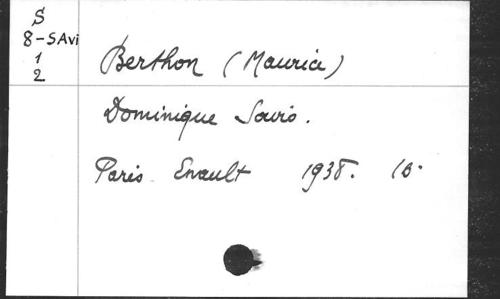 S
8-SAvi
1
2
Berthon (Maurice)
Dominique Savio.
Paris Enault 1938. 16.